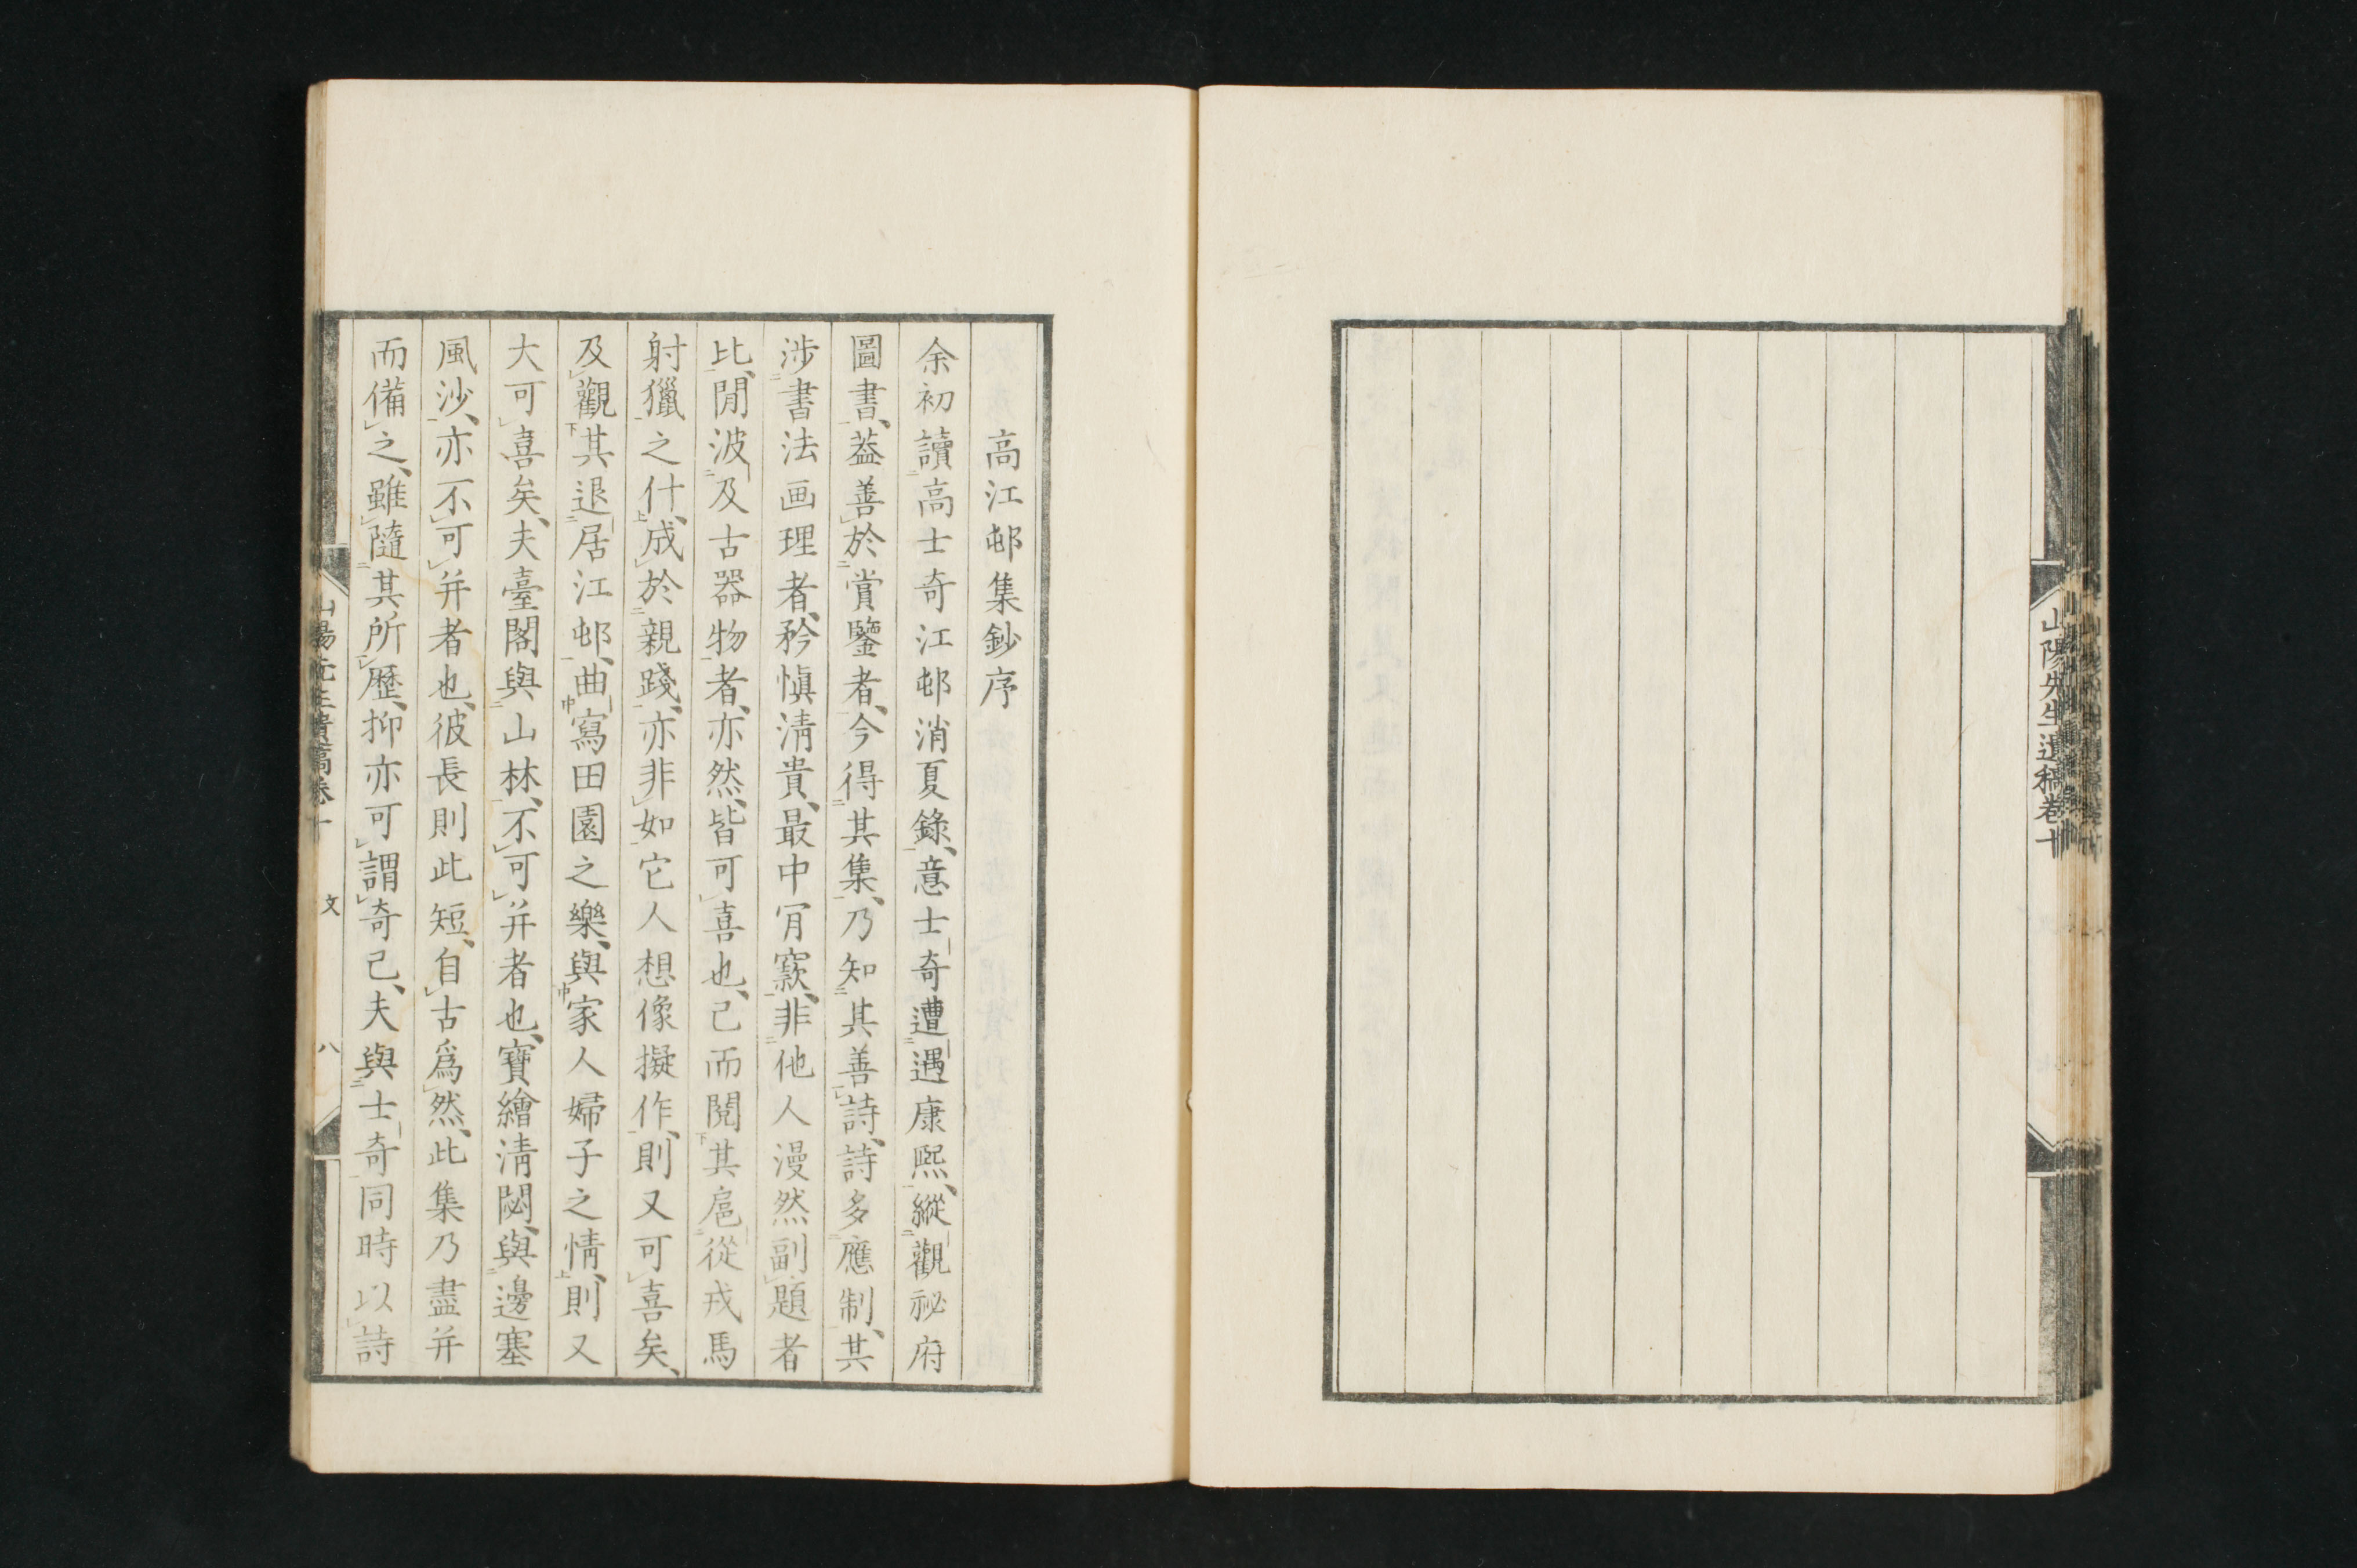 山陽先生遺稿卷十
高江邨集鈔序
余初讀高士奇江邨消夏錄、意士奇遭遇康熙、縱觀祕府
圖書、葢善於賞鑒者、今得其集、乃知其善詩、詩多應制、其
涉書法画理者、矜愼淸貴、最中肎窾、非他人漫然副題者
比、閒波及古器物者、亦然、皆可喜也、已而閱其扈從戎馬
射獵之什、成於親踐、亦非如它人想像擬作、則又可喜矣、
及觀其退居江邨、曲寫田園之樂、與家人婦子之情、則又
大可喜矣、夫臺閣與山林、不可并者也、寶繪淸閟、與邊塞
風沙、亦不可并者也、彼長則此短、自古爲然、此集乃盡并
而備之、雖隨其所歷、抑亦可謂奇已、夫與士奇同時以詩
山陽先生遺稿卷十 文 八